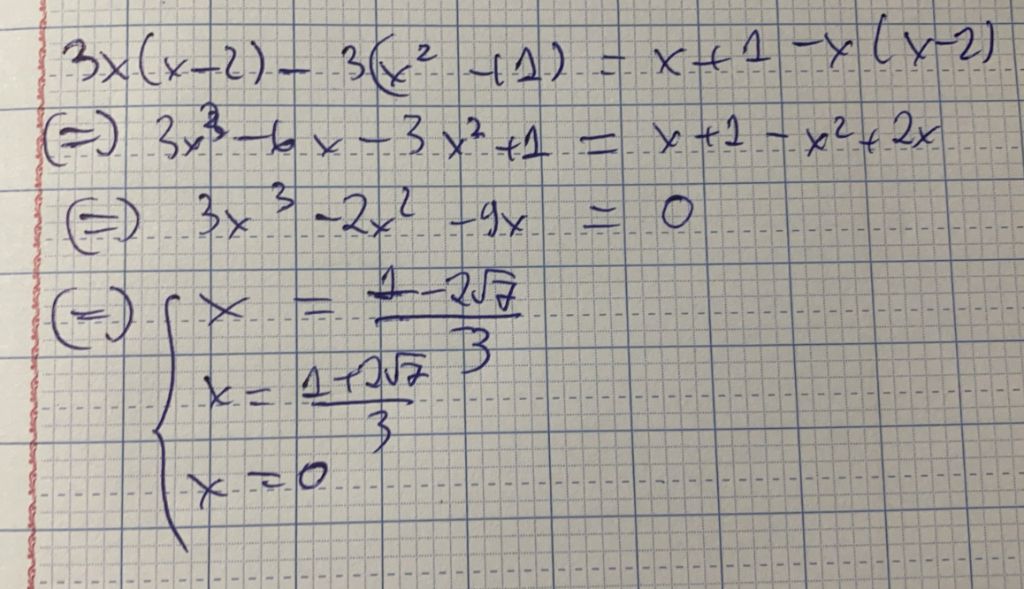 3x(x-2) - 3(x² +1) = x+1 -x(x-2)
(=) 3x³ -6x -3x²+1 = x+1 -x²+2x
(=) 3x³ -2x² -9x = 0
(=) { x = \frac{1-2√7}{3}
x = \frac{1+2√7}{3}
x = 0